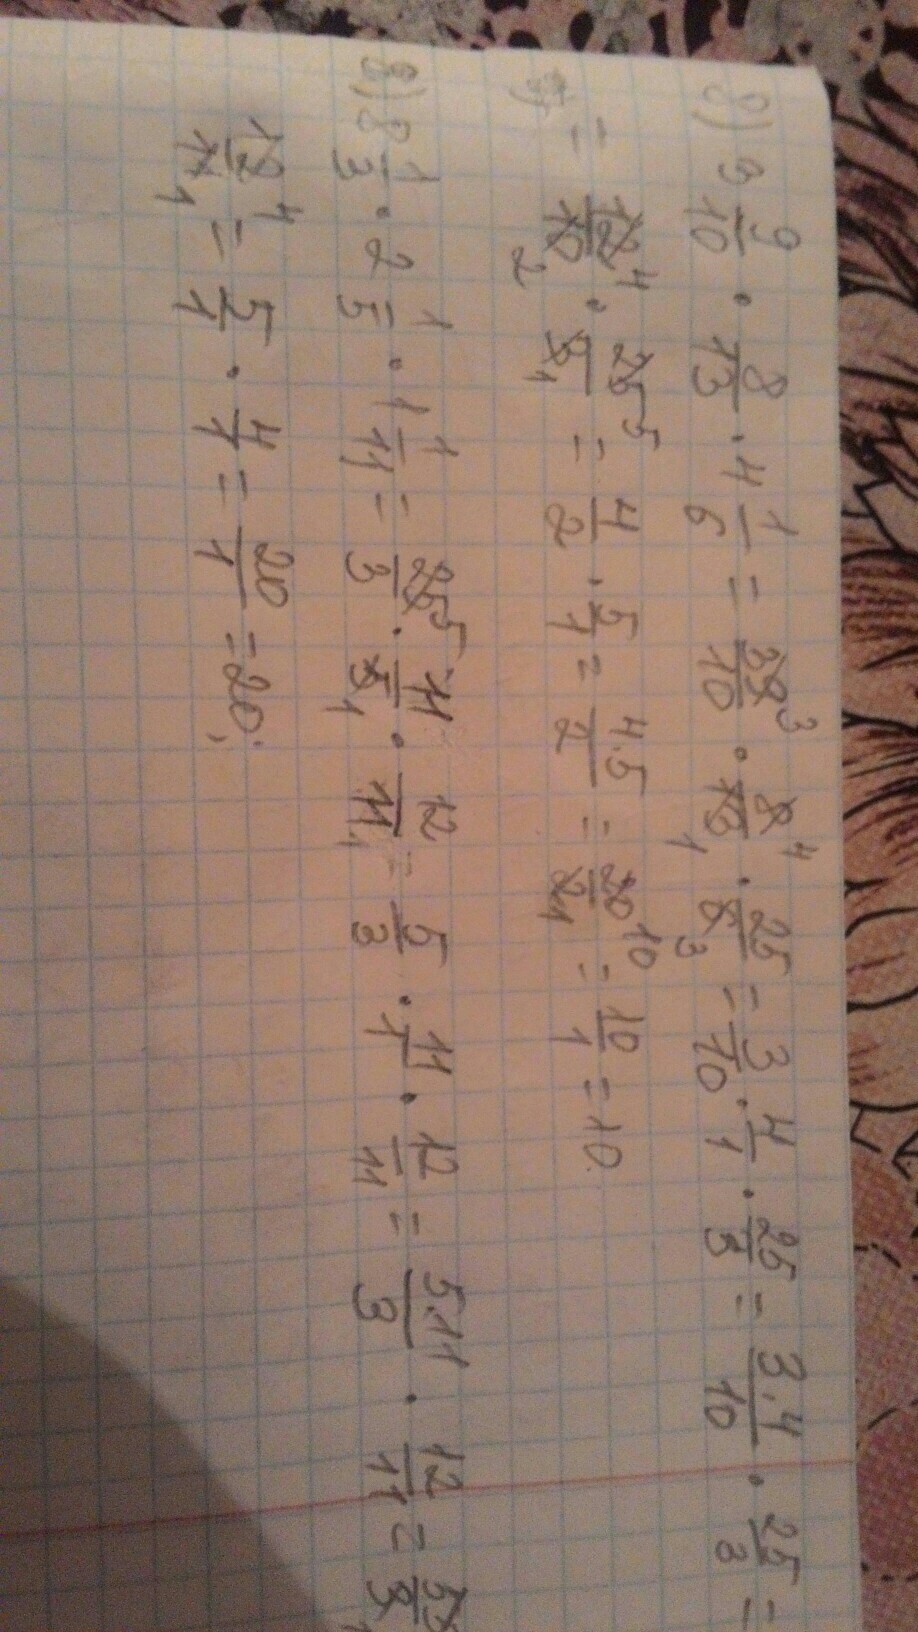 8) 3 9/10 · 8/13 · 4 1/6 = 39³/10 · 8⁴/13₁ · 25/6₃ = 3/10 · 4/1 · 25/3 = 3.4/10 · 25/3 =
= 12⁴/10₂ · 25⁵/3₁ = 4/2 · 5/1 = 4.5/2 = 20¹⁰/2₁ = 10/1 = 10.
9) 8 1/3 · 2 1/5 · 1 1/11 = 25⁵/3 · 11/5₁ · 12/11 = 5/3 · 11/1 · 12/11 = 5.11/3 · 12/11 =
12⁴/11₁ = 5/1 · 4/1 = 20/1 = 20;